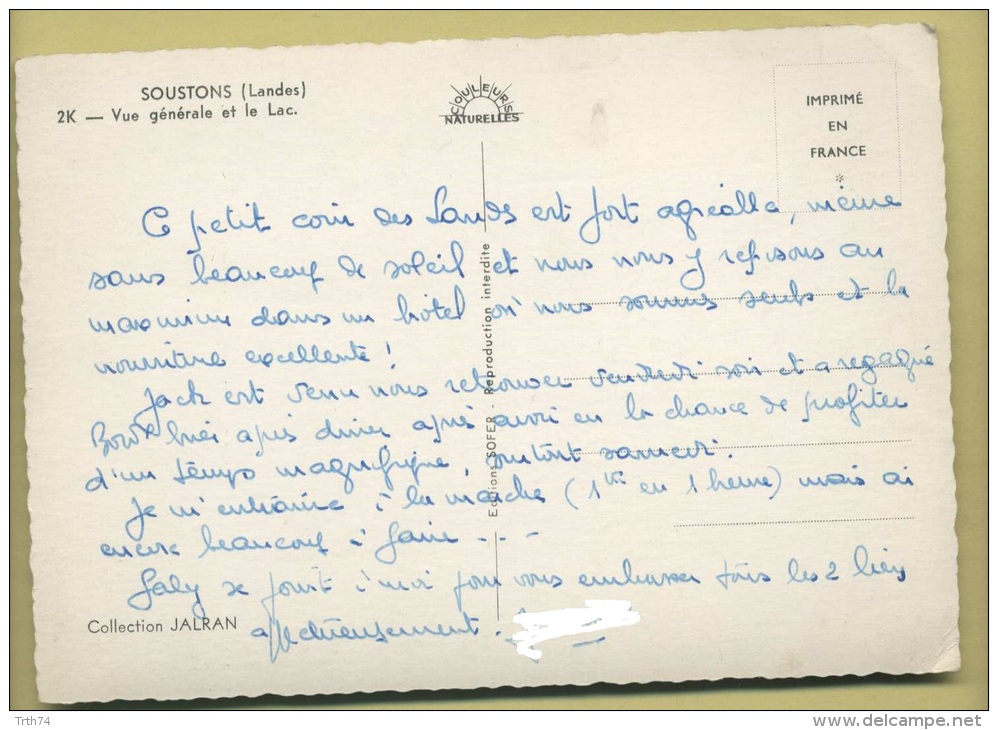 SOUSTONS (Landes)
2K — Vue générale et le Lac.
COULEURS
NATURELLES
IMPRIMÉ
EN
FRANCE
*
Ce petit coin des Landes est fort agréable, même
sans beaucoup de soleil et nous nous y reposons au
maximum dans un hôtel où nous sommes seuls et la
nourriture excellente !
Jack est venu nous retrouver vendredi soir et a regagné
Bordx hier après dîner après avoir eu la chance de profiter
d'un temps magnifique, surtout samedi.
Je m'entraîne à la marche (1 en 1 heure) mais ai
encore beaucoup à faire - - -
Gaby se joint à moi pour vous embrasser tous les 2 bien
affectueusement.
Editions SOFER - Reproduction interdite
Collection JALRAN
Trth74
delcampe.net